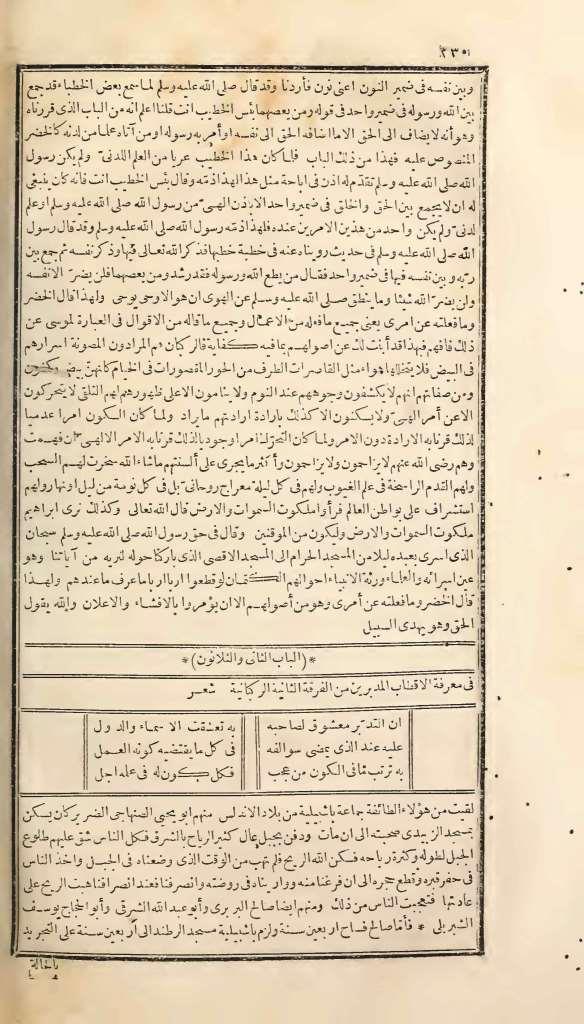 ٢٣٥
وبين نفسه فى ضمير النون اعنى نون فأردنا وقد قال صلى الله عليه وسلم لما سمع بعض الخطباء قد جمع
بين الله ورسوله فى ضمير واحد فى قوله ومن يعصهما بئس الخطيب انت قلنا اعلم انه من الباب الذى قررناه
وهو أنه لا يضاف الى الحق الا ما اضافه الحق الى نفسه او أمر به رسوله او من آتاه علما من لدنه كالخضر
المنصوص عليه فهذا من ذلك الباب فلما كان هذا الخطيب عريا من العلم اللدنى ولم يكن رسول
الله صلى الله عليه وسلم تقدّم له اذن فى اباحة مثل هذا لهذا ذمّه وقال بئس الخطيب انت فانه كان ينبغى
له ان لا يجمع بين الحق والخلق فى ضمير واحد الا باذن الهىّ من رسول الله صلى الله عليه وسلم او علم
لدنى ولم يكن واحد من هذين الامرين عنده فلهذا ذمّه رسول الله صلى الله عليه وسلم وقد قال رسول
الله صلى الله عليه وسلم فى حديث رويناه عنه فى خطبة خطبها فذكر الله تعالى فيها وذكر نفسه ثم جمع بين
ربه وبين نفسه فيها فى ضمير واحد فقال من يطع الله ورسوله فقد رشد ومن يعصهما فلن يضرّ الا نفسه
ولن يضرّ الله شيئا وما ينطق صلى الله عليه وسلم عن الهوى ان هو الا وحى يوحى ولهذا قال الخضر
وما فعلته عن امرى يعنى جميع ما فعله من الاعمال وجميع ما قاله من الاقوال فى العبارة لموسى عن
ذلك فافهم فبهذا قد أبنت لك عن اصولهم بما فيه كفاية فالركبان هم المرادون المصونة اسرارهم
فى البيض فلا يتخللها هواء مثل القاصرات الطرف من الحور المقصورات فى الخيام كأنهنّ بيض مكنون
ومن صفاتهم انهم لا يكشفون وجوههم عند النوم ولا ينامون الا على ظهورهم لهم التلقى لا يتحركون
الا عن أمر الهىّ ولا يسكنون الا كذلك بارادة ارادتهم ما يراد ولما كان السكون امرا عدميا
لذلك قرنا به الارادة دون الامر ولما كان التحرّك امرا وجوديا لذلك قرنا به الامر الالهىّ ان فهمت
وهم رضى الله عنهم لا يزاحمون ولا يزاحمون وأكثر ما يجرى على ألسنتهم ما شاء الله سخرت لهم السحب
ولهم القدم الراسخة فى علم الغيوب ولهم فى كل ليلة معراج روحانى بل فى كل نومة من ليل او نهار ولهم
استشراف على بواطن العالم فرأوا ملكوت السموات والارض قال الله تعالى وكذلك نرى ابراهيم
ملكوت السموات والارض وليكون من الموقنين وقال فى حق رسول الله صلى الله عليه وسلم سبحان
الذى اسرى بعبده ليلا من المسجد الحرام الى المسجد الاقصى الذى باركنا حوله لنريه من آياتنا وهو
عين اسرائه والعلماء ورثة الانبياء احوالهم الكتمان لو قطعوا اربا اربا ما عرف ما عندهم ولهذا
قال الخضر وما فعلته عن أمرى وهو من أصولهم الا ان يؤمروا بالافشاء والاعلان والله يقول
الحق وهو يهدى السبيل
*(الباب الثانى والثلاثون)*
فى معرفة الاقطاب المدبرين من الفرقة الثانية الركبانية شعر
ان التدبر معشوق لصاحبه به تعشقت الاسماء والدول
عليه عند الذى يمضى سوالفه فى كل ما يقتضيه كونه العمل
به ترتب ما فى الكون من عجب فكل كون له فى علمه اجل
لقيت من هؤلاء الطائفة جماعة باشبيلية من بلاد الاندلس منهم ابو يحيى الصنهاجى الضرير كان يسكن
بمسجد الزبيدى صحبته الى ان مات ودفن بجبل عال كثير الرياح بالشرق فكل الناس شق عليهم طلوع
الجبل لطوله وكثرة رياحه فسكن الله الريح فلم تهب من الوقت الذى وضعناه فى الجبل واخذ الناس
فى حفر قبره وقطع حجره الى ان فرغنا منه وواريناه فى روضته وانصرفنا فعند انصرافنا هبت الريح على
عادتها فتعجبت الناس من ذلك ومنهم ايضا صالح البربرى وأبو عبد الله الشرقى وأبو الحجاج يوسف
الشبربلى * فأما صالح فساح اربعين سنة ولزم باشبيلية مسجد الرطندالى أربعين سنة على التجريد
بالحالة